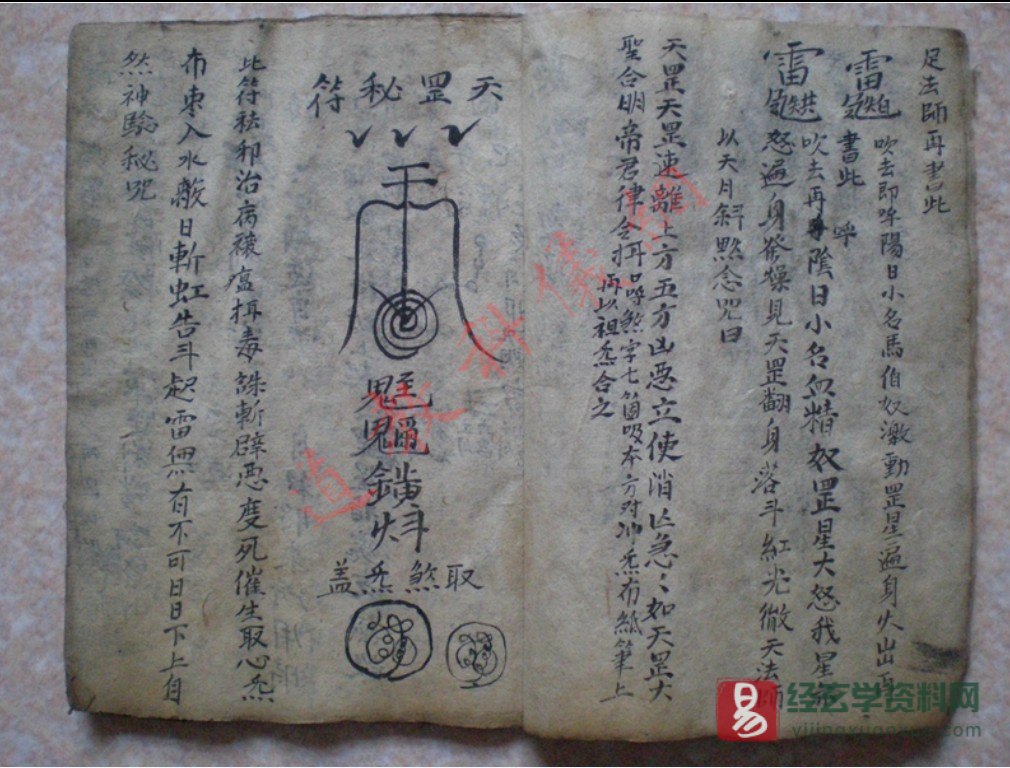 足法師再書此
雷 吹去即呼陽日小名馬伯奴激動罡星遍身火出再
書此 呼
吹去再 陰日小名血精奴罡星大怒我星
雷 怒遍身發燥見天罡翻身落斗紅光徹天法師
以天月斜㸃念咒曰
天罡天罡速離上方五方凶惡立使消亡急〻如天罡大
聖合明帝君律令 再口呼煞字七箇吸本方 炁布紙筆上
再以祖炁合之
天罡秘符
取煞炁盖
此符祛邪治病禳瘟 毒誅斬辟惡度死催生取心炁
布枣入水 日斬虹告斗起雷無有不可日日下上自
然神驗秘咒
道教科儀
易 经艺学资料网
yijingxue
.com